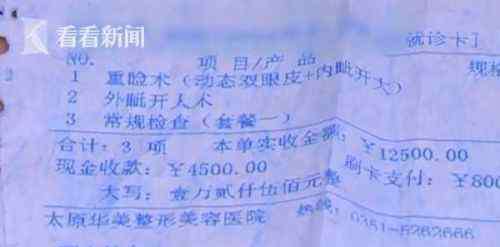 看看新闻
就诊卡
NO. 项目/产品 规格
1 重睑术(动态双眼皮+内眦开大)
2 外眦开大术
3 常规检查(套餐一)
合计: 3 项 本单实收金额: ￥12500.00
现金收款: ￥4500.00 刷卡支付: ￥800
大写: 壹万贰仟伍佰元整
太原华美整形美容医院 热线: 0351-5262666